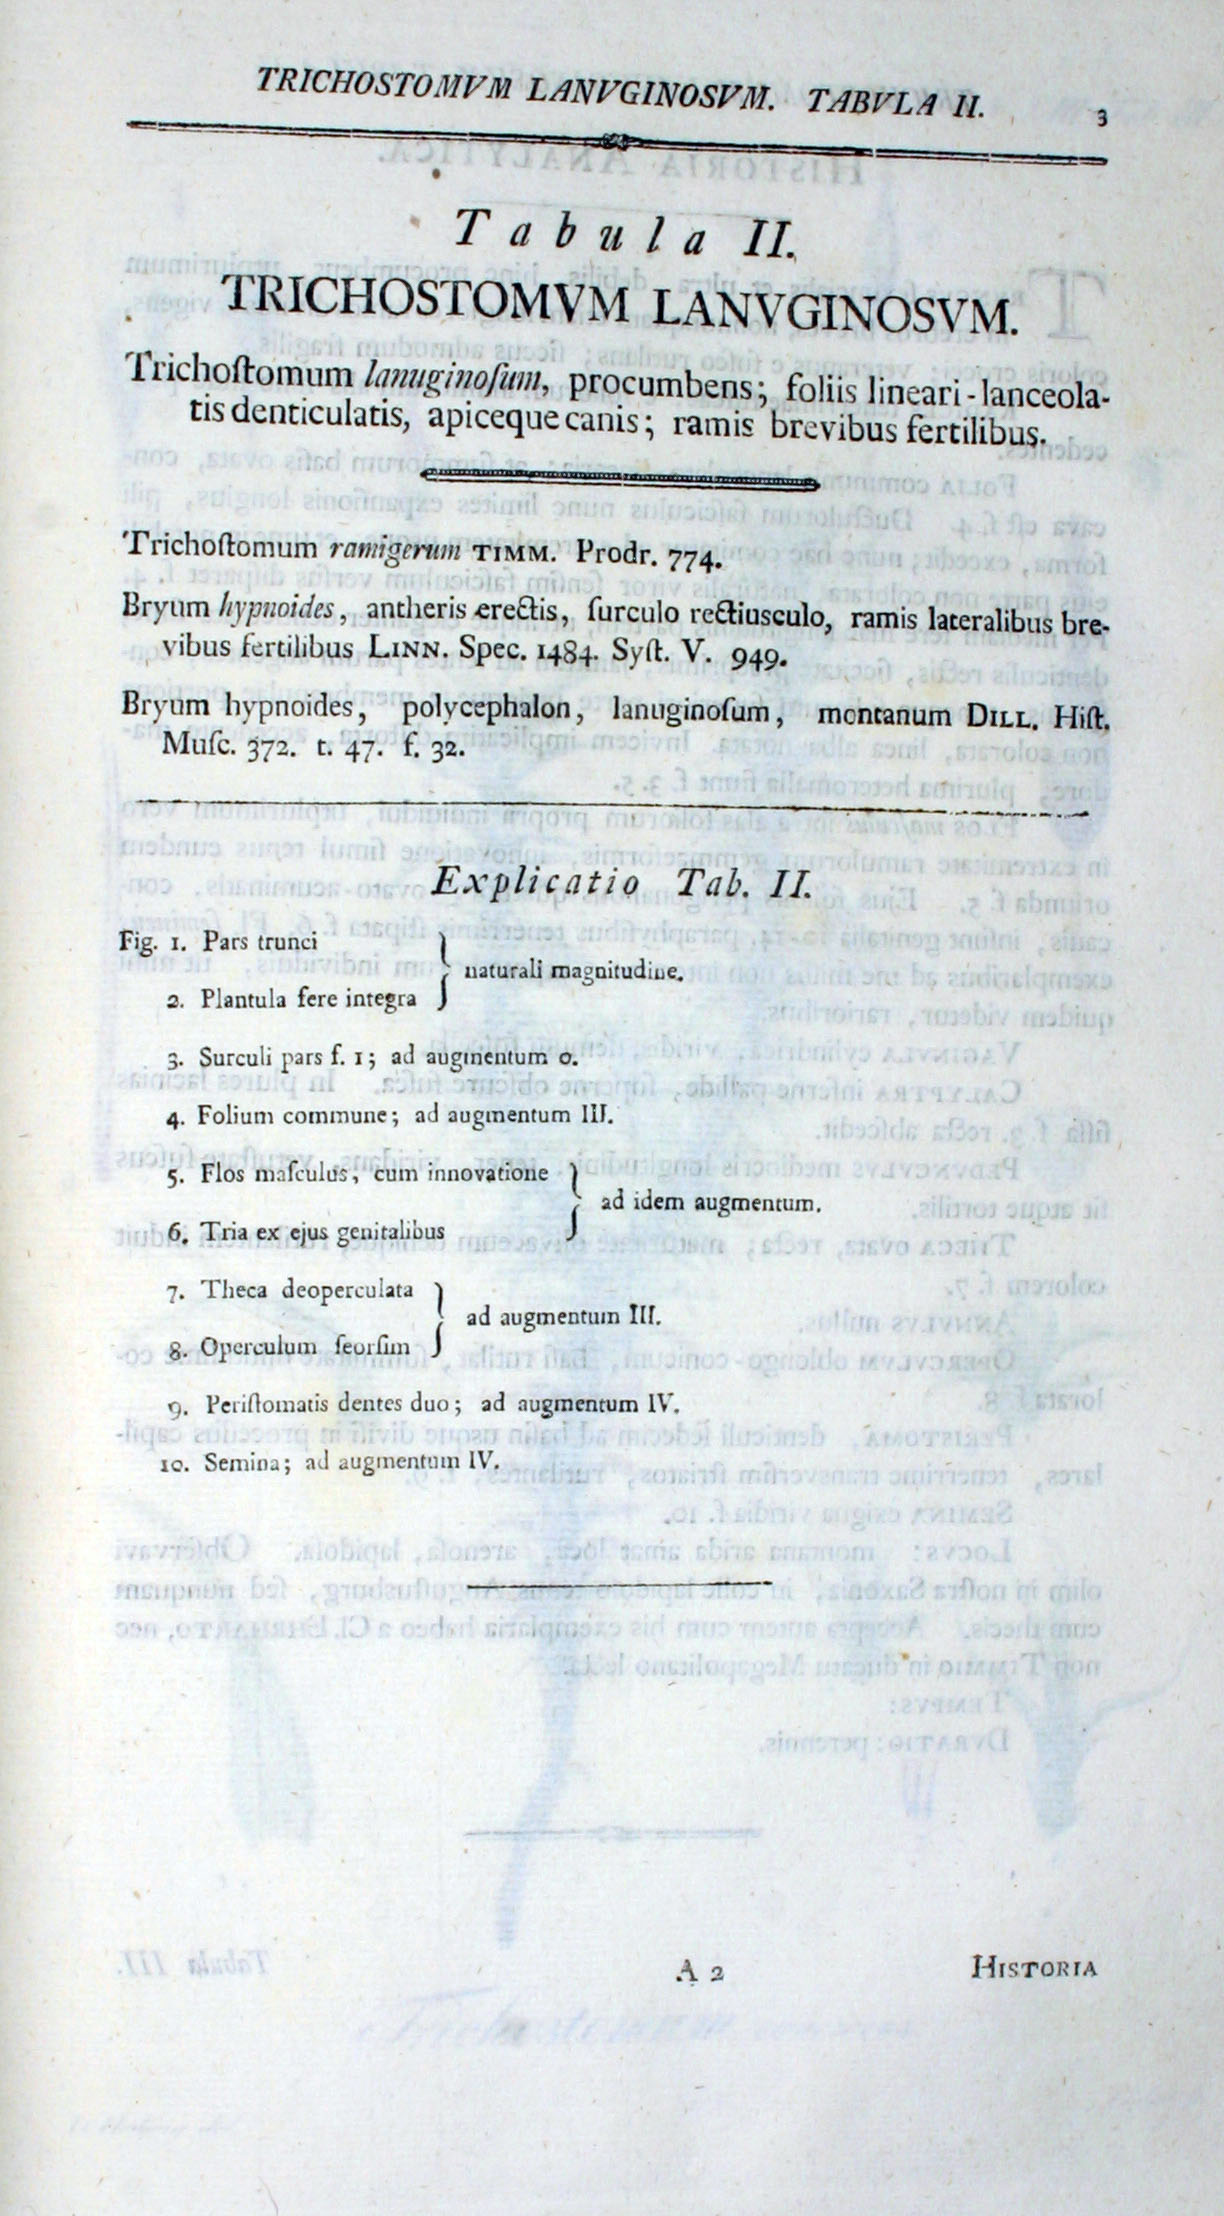 TRICHOSTOMVM LANVGINOSVM. TABVLA II. 3
Tabula II.
TRICHOSTOMVM LANVGINOSVM.
Trichoſtomum lanuginoſum, procumbens; foliis lineari-lanceola-
tis denticulatis, apiceque canis; ramis brevibus fertilibus.
Trichoſtomum ramigerum TIMM. Prodr. 774.
Bryum hypnoides, antheris erectis, ſurculo rectiusculo, ramis lateralibus bre-
vibus fertilibus LINN. Spec. 1484. Syſt. V. 949.
Bryum hypnoides, polycephalon, lanuginoſum, montanum DILL. Hiſt.
Muſc. 372. t. 47. f. 32.
Explicatio Tab. II.
Fig. 1. Pars trunci
naturali magnitudine.
2. Plantula fere integra
3. Surculi pars f. 1; ad augmentum 0.
4. Folium commune; ad augmentum III.
5. Flos maſculus, cum innovatione
ad idem augmentum.
6. Tria ex ejus genitalibus
7. Theca deoperculata
ad augmentum III.
8. Operculum ſeorſim
9. Periſtomatis dentes duo; ad augmentum IV.
10. Semina; ad augmentum IV.
A 2 HISTORIA